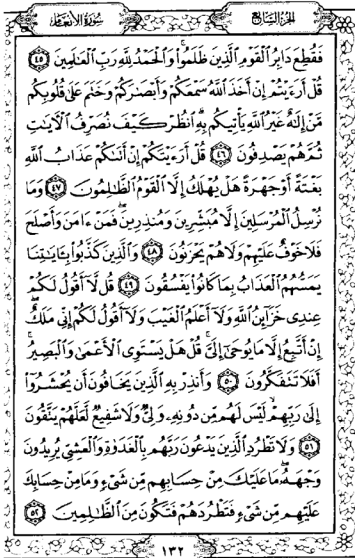 الجزء السابع سورة الأنعام
فَقُطِعَ دَابِرُ الْقَوْمِ الَّذِينَ ظَلَمُوا وَالْحَمْدُ لِلَّهِ رَبِّ الْعَٰلَمِينَ ٤٥
قُلْ أَرَءَيْتُمْ إِنْ أَخَذَ اللَّهُ سَمْعَكُمْ وَأَبْصَٰرَكُمْ وَخَتَمَ عَلَىٰ قُلُوبِكُم
مَّنْ إِلَٰهٌ غَيْرُ اللَّهِ يَأْتِيكُم بِهِ انظُرْ كَيْفَ نُصَرِّفُ الْآيَٰتِ
ثُمَّ هُمْ يَصْدِفُونَ ٤٦ قُلْ أَرَءَيْتَكُمْ إِنْ أَتَىٰكُمْ عَذَابُ اللَّهِ
بَغْتَةً أَوْ جَهْرَةً هَلْ يُهْلَكُ إِلَّا الْقَوْمُ الظَّٰلِمُونَ ٤٧ وَمَا
نُرْسِلُ الْمُرْسَلِينَ إِلَّا مُبَشِّرِينَ وَمُنذِرِينَ فَمَنْ ءَامَنَ وَأَصْلَحَ
فَلَا خَوْفٌ عَلَيْهِمْ وَلَا هُمْ يَحْزَنُونَ ٤٨ وَالَّذِينَ كَذَّبُوا بِـَٔايَٰتِنَا
يَمَسُّهُمُ الْعَذَابُ بِمَا كَانُوا يَفْسُقُونَ ٤٩ قُل لَّا أَقُولُ لَكُمْ
عِندِى خَزَائِنُ اللَّهِ وَلَا أَعْلَمُ الْغَيْبَ وَلَا أَقُولُ لَكُمْ إِنِّى مَلَكٌ
إِنْ أَتَّبِعُ إِلَّا مَا يُوحَىٰ إِلَىَّ قُلْ هَلْ يَسْتَوِى الْأَعْمَىٰ وَالْبَصِيرُ
أَفَلَا تَتَفَكَّرُونَ ٥٠ وَأَنذِرْ بِهِ الَّذِينَ يَخَافُونَ أَن يُحْشَرُوا
إِلَىٰ رَبِّهِمْ لَيْسَ لَهُم مِّن دُونِهِ وَلِىٌّ وَلَا شَفِيعٌ لَّعَلَّهُمْ يَتَّقُونَ
٥١ وَلَا تَطْرُدِ الَّذِينَ يَدْعُونَ رَبَّهُم بِالْغَدَوٰةِ وَالْعَشِىِّ يُرِيدُونَ
وَجْهَهُ مَا عَلَيْكَ مِنْ حِسَابِهِم مِّن شَىْءٍ وَمَا مِنْ حِسَابِكَ
عَلَيْهِم مِّن شَىْءٍ فَتَطْرُدَهُمْ فَتَكُونَ مِنَ الظَّٰلِمِينَ ٥٢
١٣٢